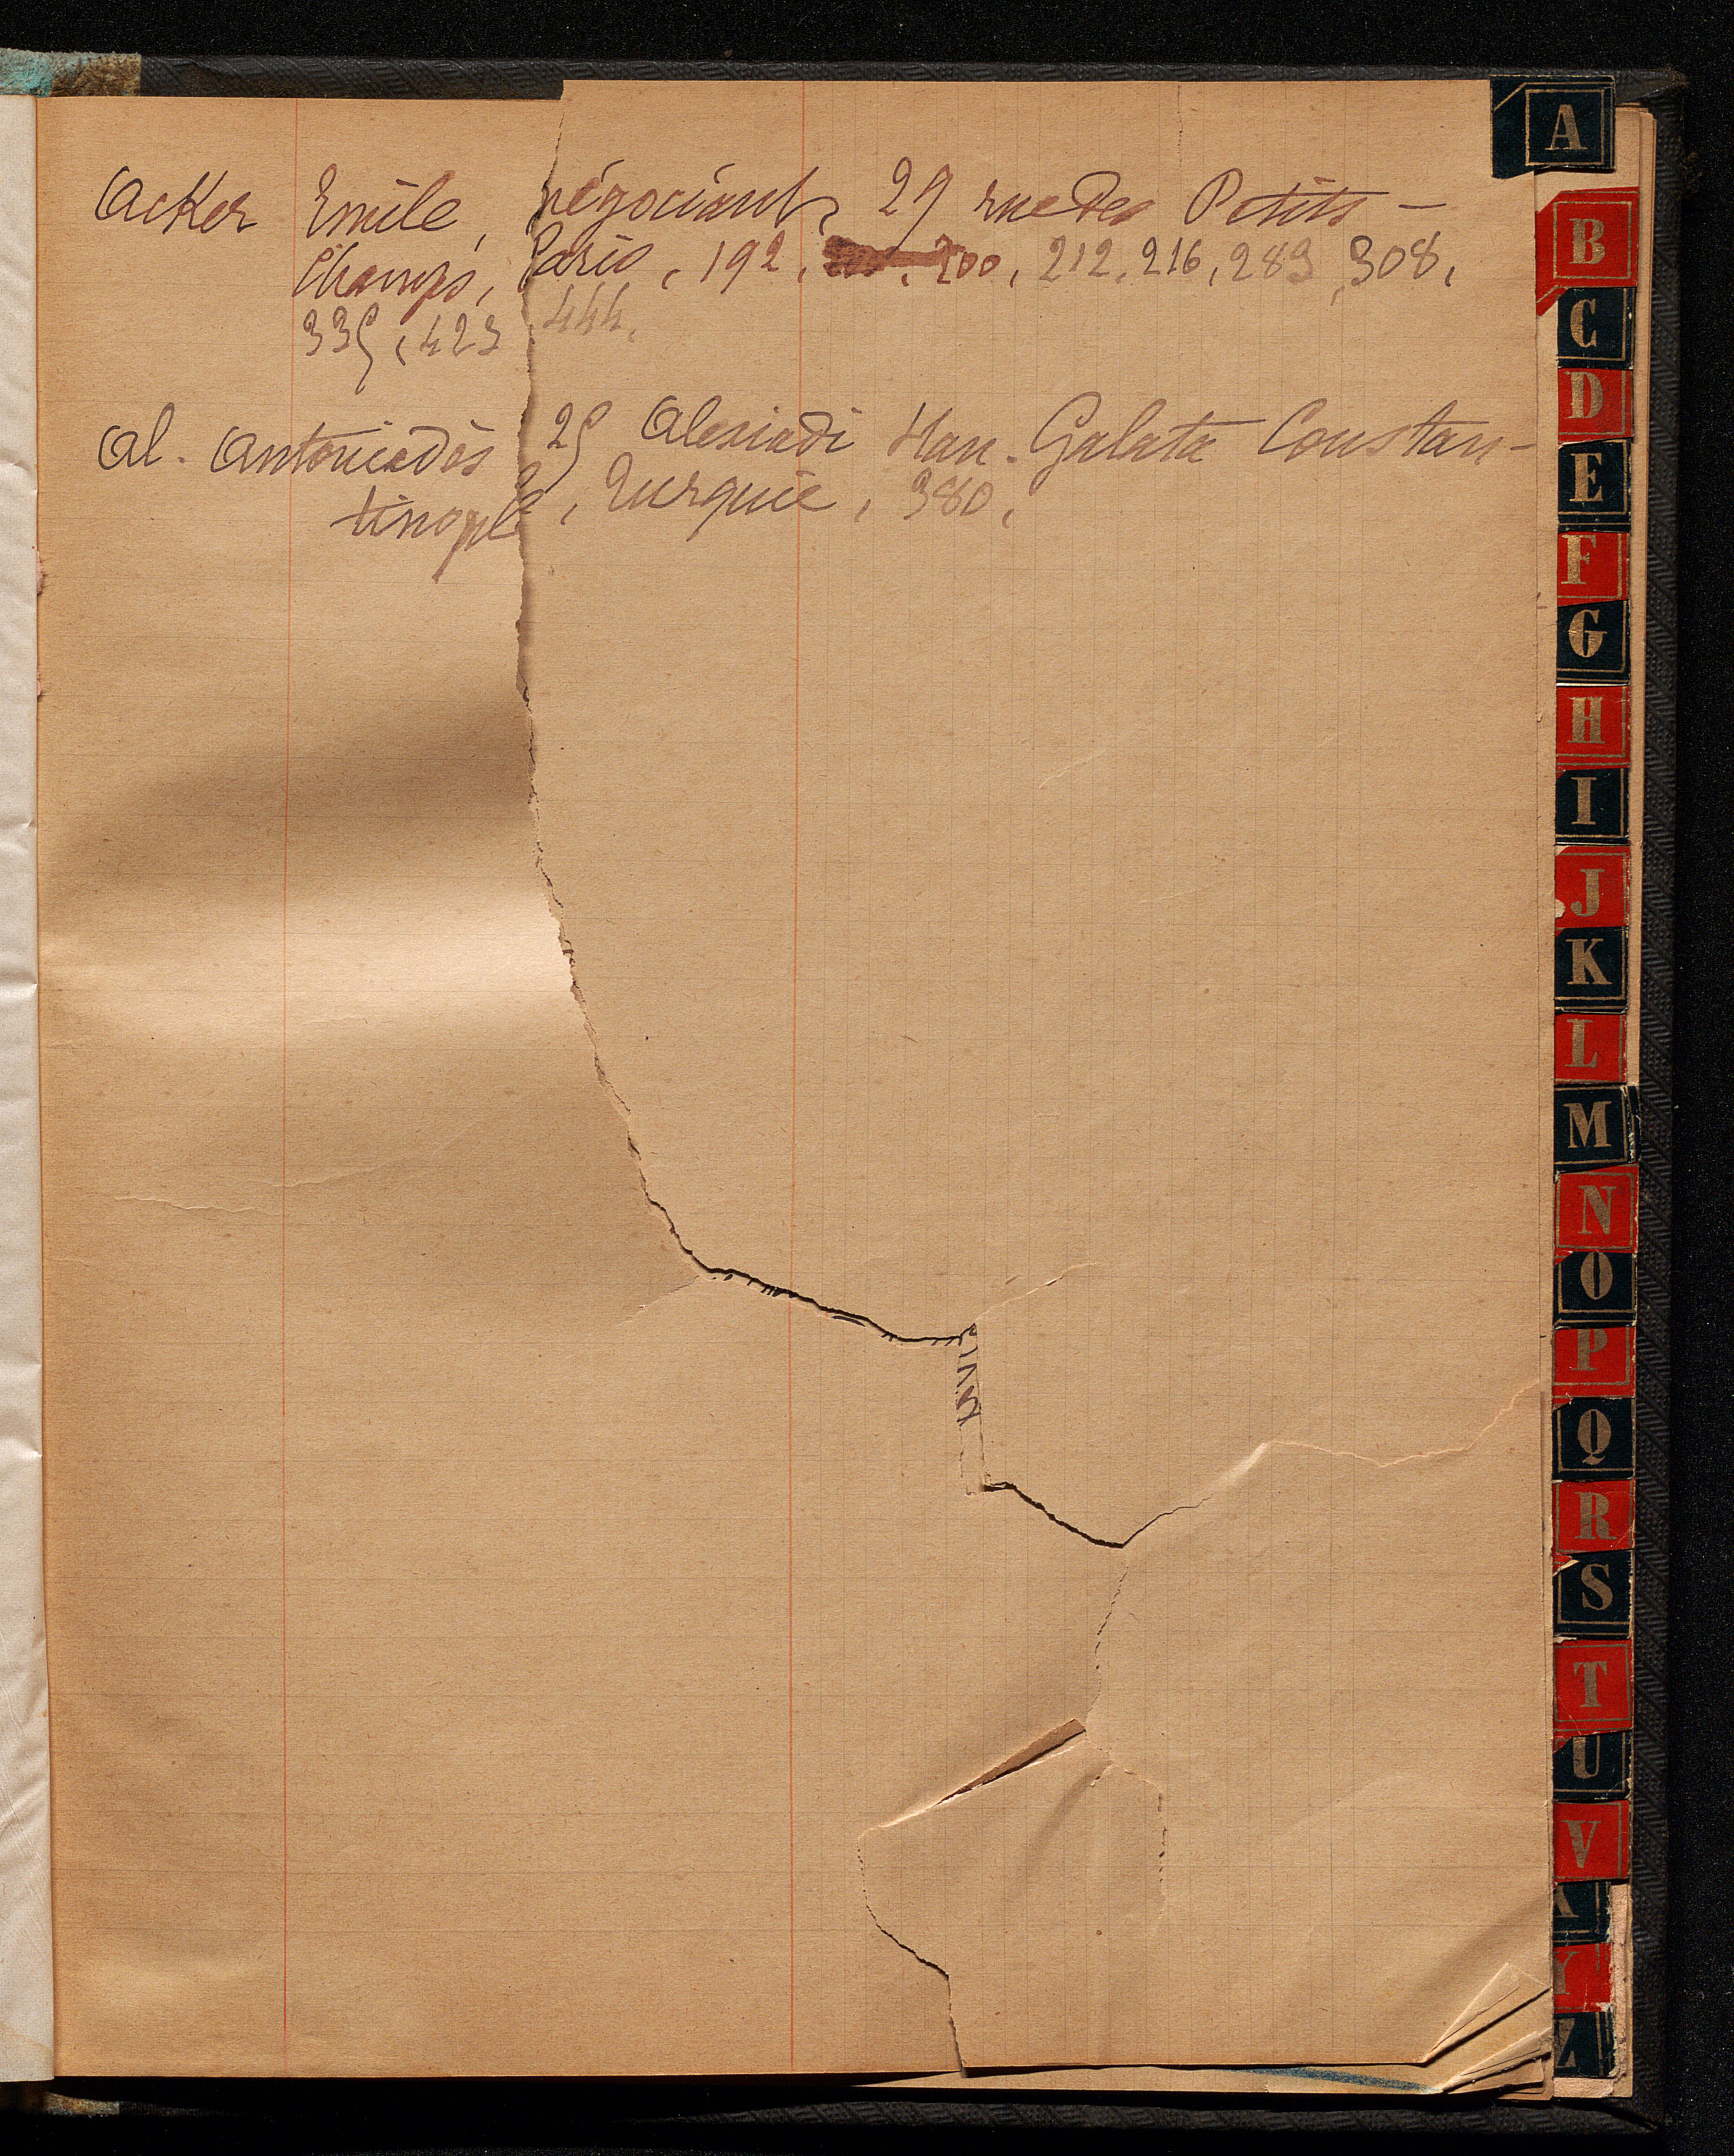 Acker Emile, négociant, 29 rue des Petits-
Champs, Paris, 192, 200, 212, 216, 283, 308,
335, 423, 444,
Al. Antoniadès 25 Alexiadi Han. Galata Constan-
tinople, Turquie, 380,
A
B
C
D
E
F
G
H
I
J
K
L
M
N
O
P
Q
R
S
T
U
V
Y
Z